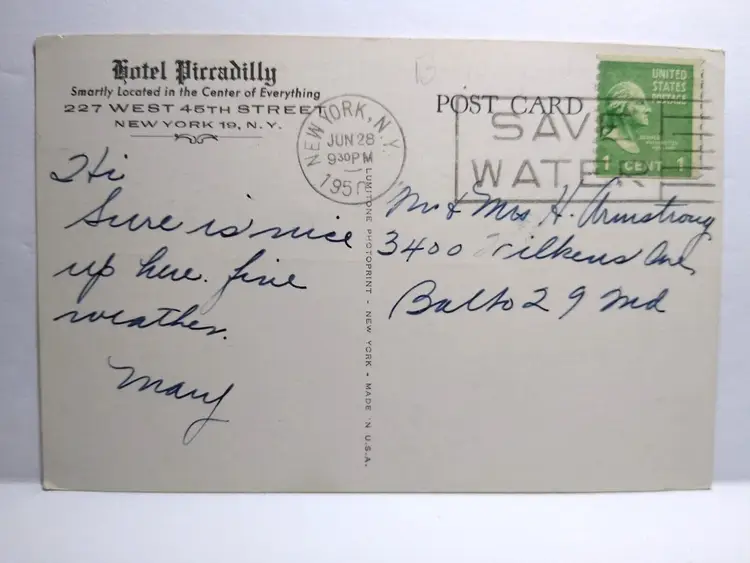 Hotel Piccadilly
Smartly Located in the Center of Everything
227 WEST 45TH STREET
NEW YORK 19, N.Y.
NEW YORK, N.Y.
JUN 28
9 30 PM
1950
POST CARD
SAVE
WATER
UNITED
STATES
POSTAGE
1 CENT 1
Hi
Sure is nice
up here. fine
weather.
Mary
Mr & Mrs. H. Armstrong
3400 Wilkens Ave
Balto 29 Md
LUMITONE PHOTOPRINT - NEW YORK - MADE IN U.S.A.